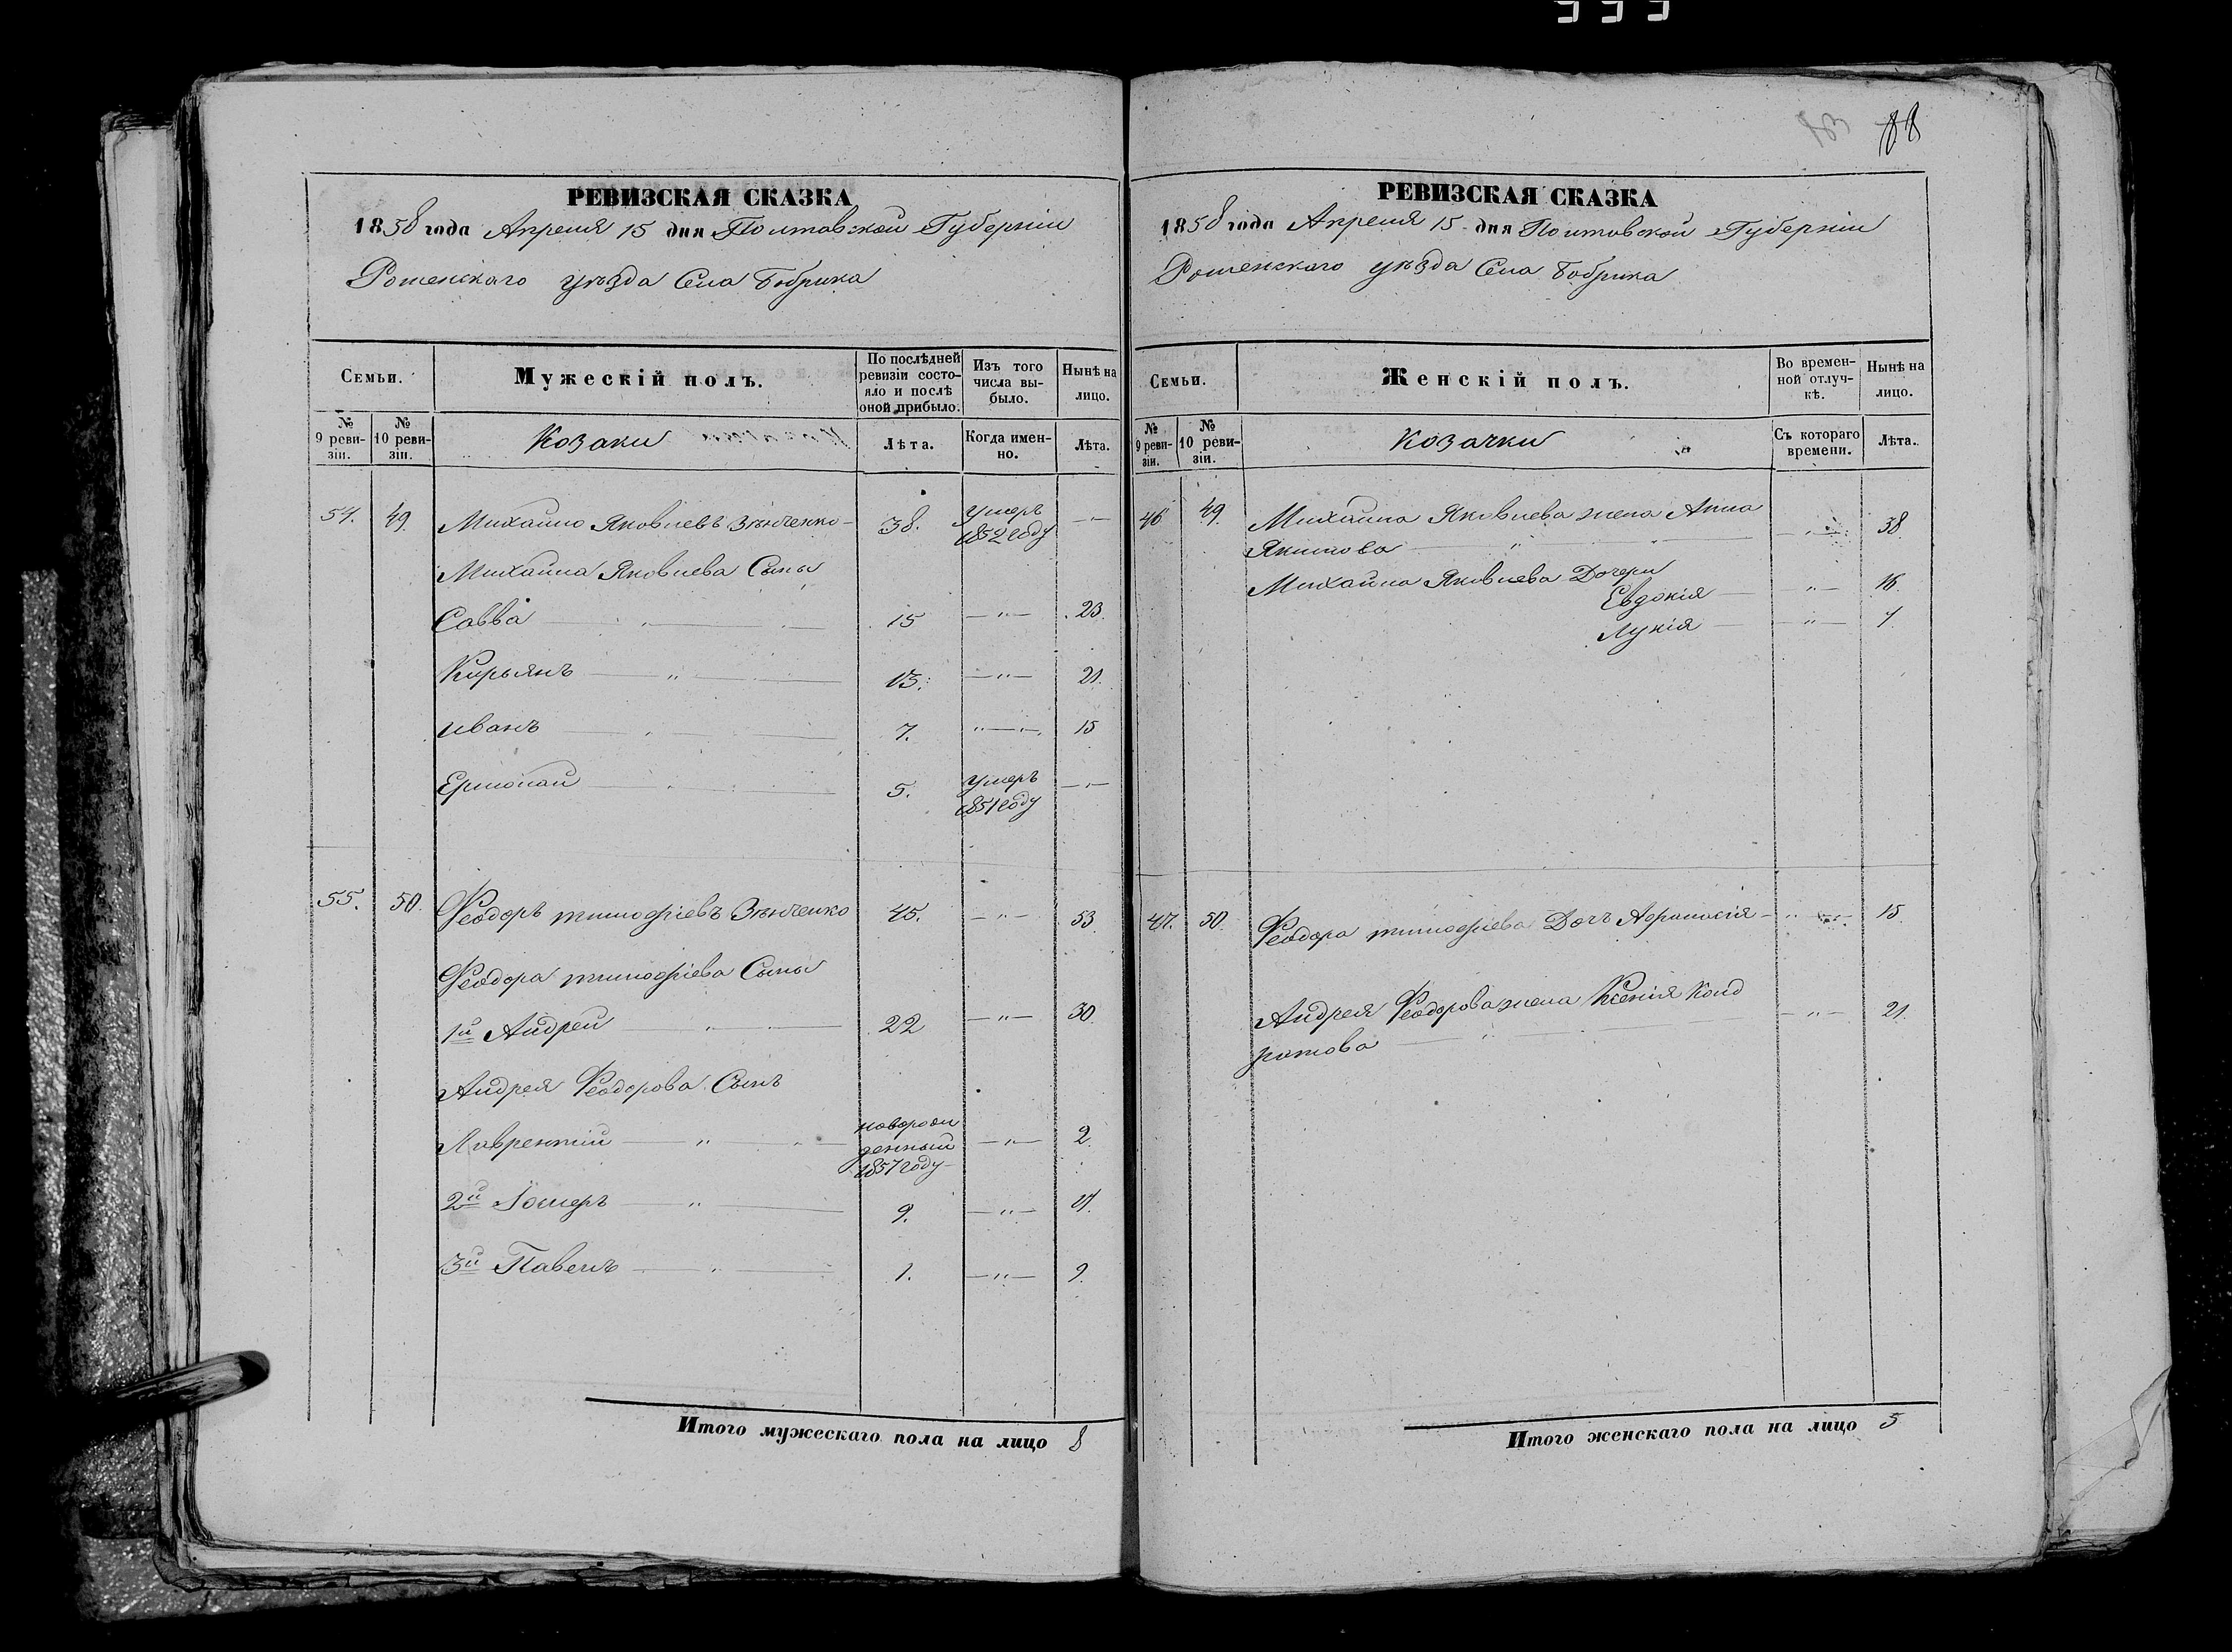 88
РЕВИЗСКАЯ СКАЗКА
1858 года Апреля 15 дня Полтавской Губерніи
Роменскаго уѣзда Села Бобрика
Семьи.
Мужескій полъ.
По послѣдней ревизіи состояло и послѣ оной прибыло.
Изъ того числа выбыло.
Нынѣ на лицо.
№ 9 ревизіи.
№ 10 ревизіи.
Козаки
Лѣта.
Когда именно.
Лѣта.
54. 49. Михайло Яковлевъ Зѣнченко 38. умеръ 1852 году
Михайла Яковлева Сыны
Савва 15 23.
Кирьянъ 13. 21.
Иванъ 7. 15
Ермолай 5. умеръ 1851 году
55. 50. Феодоръ тимофѣевъ Зѣнченко 45. 53.
Феодора тимофѣева Сыны
1й Андрей 22 30.
Андрея Феодорова Сынъ
Лаврентій новорожденный 1857 году 2.
2й 9.
3й Павелъ 1. 9.
Итого мужескаго пола на лицо 8
РЕВИЗСКАЯ СКАЗКА
1858 года Апреля 15 дня Полтавской Губерніи
Роменскаго уѣзда Села Бобрика
Семьи.
Женскій полъ.
Во временной отлучкѣ.
Нынѣ на лицо.
№ 9 ревизіи.
№ 10 ревизіи.
Козачки
Съ котораго времени.
Лѣта.
46 49. Михайла Яковлева жена Анна
Якимова 38.
Михайла Яковлева Дочери
Евдокія 16.
Лукія 7
47. 50. Феодора тимофѣева Дочъ Афанасія 15.
Андрея Феодорова жена Ксенія Конд
ратова 21.
Итого женскаго пола на лицо 5